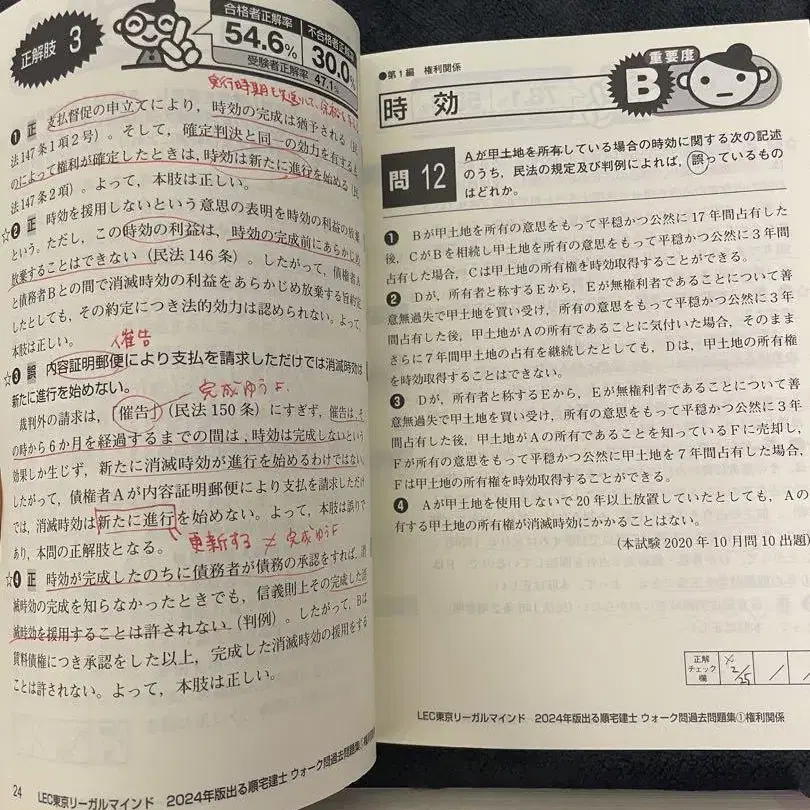 正解肢 3
合格者正解率 不合格者正解率
54.6% 30.0%
受験者正解率 47.1%
❶ 正 支払督促の申立てにより，時効の完成は猶予される（民
法147条1項2号）。そして，確定判決と同一の効力を有するも
のによって権利が確定したときは，時効は新たに進行を始める（民
法147条2項）。よって，本肢は正しい。
☆❷ 正 時効を援用しないという意思の表明を時効の利益の放棄
という。ただし，この時効の利益は，時効の完成前にあらかじめ
放棄することはできない（民法146条）。したがって，債権者A
と債務者Bとの間で消滅時効の利益をあらかじめ放棄する旨約定
したとしても，その約定につき法的効力は認められない。よって，
本肢は正しい。
催告
☆❸ 誤 内容証明郵便により支払を請求しただけでは消滅時効は
新たに進行を始めない。
完成ゆうF.
裁判外の請求は，「催告」（民法150条）にすぎず，催告は，そ
の時から6か月を経過するまでの間は，時効は完成しないという
効果しか生じず，新たに消滅時効が進行を始めるわけではない。
したがって，債権者Aが内容証明郵便により支払を請求しただけ
では，消滅時効は新たに進行を始めない。よって，本肢は誤りで
あり，本問の正解肢となる。
更新する ≠ 完成ゆうF
☆❹ 正 時効が完成したのちに債務者が債務の承認をすれば，消
滅時効の完成を知らなかったときでも，信義則上その完成した消
滅時効を援用することは許されない（判例）。したがって，Bは，
賃料債権につき承認をした以上，完成した消滅時効の援用をする
ことは許されない。よって，本肢は正しい。
24 LEC東京リーガルマインド 2024年版出る順宅建士 ウォーク問過去問題集①権利関係
●第1編 権利関係
重要度
B
時 効
問 12
Aが甲土地を所有している場合の時効に関する次の記述
のうち，民法の規定及び判例によれば，誤っているもの
はどれか。
❶ Bが甲土地を所有の意思をもって平穏かつ公然に17年間占有した
後，CがBを相続し甲土地を所有の意思をもって平穏かつ公然に3年間
占有した場合，Cは甲土地の所有権を時効取得することができる。
❷ Dが，所有者と称するEから，Eが無権利者であることについて善
意無過失で甲土地を買い受け，所有の意思をもって平穏かつ公然に3年
間占有した後，甲土地がAの所有であることに気付いた場合，そのまま
さらに7年間甲土地の占有を継続したとしても，Dは，甲土地の所有権
を時効取得することはできない。
❸ Dが，所有者と称するEから，Eが無権利者であることについて善
意無過失で甲土地を買い受け，所有の意思をもって平穏かつ公然に3年
間占有した後，甲土地がAの所有であることを知っているFに売却し，
Fが所有の意思をもって平穏かつ公然に甲土地を7年間占有した場合，
Fは甲土地の所有権を時効取得することができる。
❹ Aが甲土地を使用しないで20年以上放置していたとしても，Aの
有する甲土地の所有権が消滅時効にかかることはない。
（本試験 2020年10月問10出題）
正解
チェック
欄
× 2/25
LEC東京リーガルマインド 2024年版出る順宅建士 ウォーク問過去問題集①権利関係